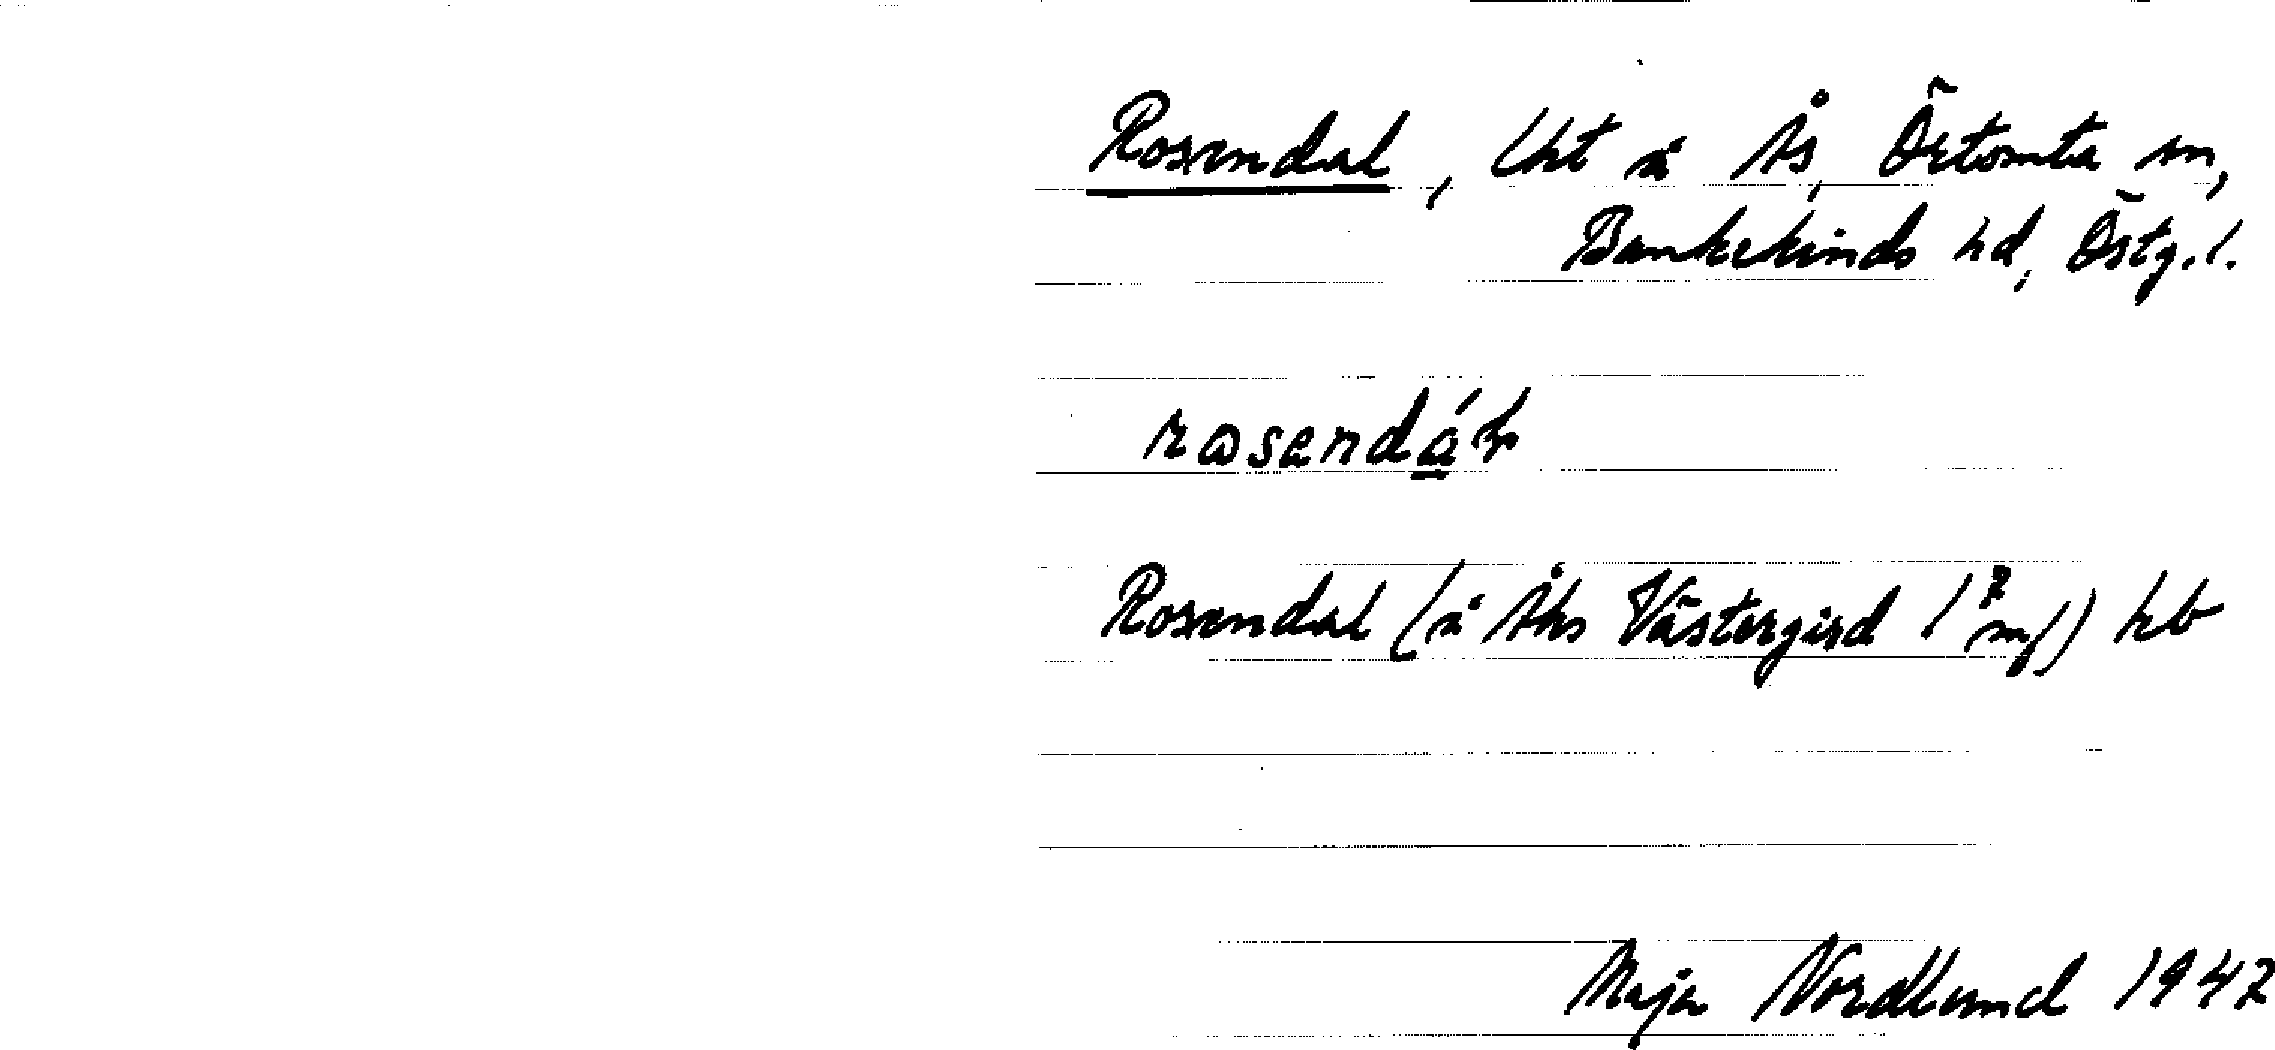 Rosendal, lht å Ås, Örtomta sn,
Bankekinds hd, Östg. l.
rosendáɫ
Rosendal (å Åhs Västergård 1 mf) hb
Maja Nordlund 1942